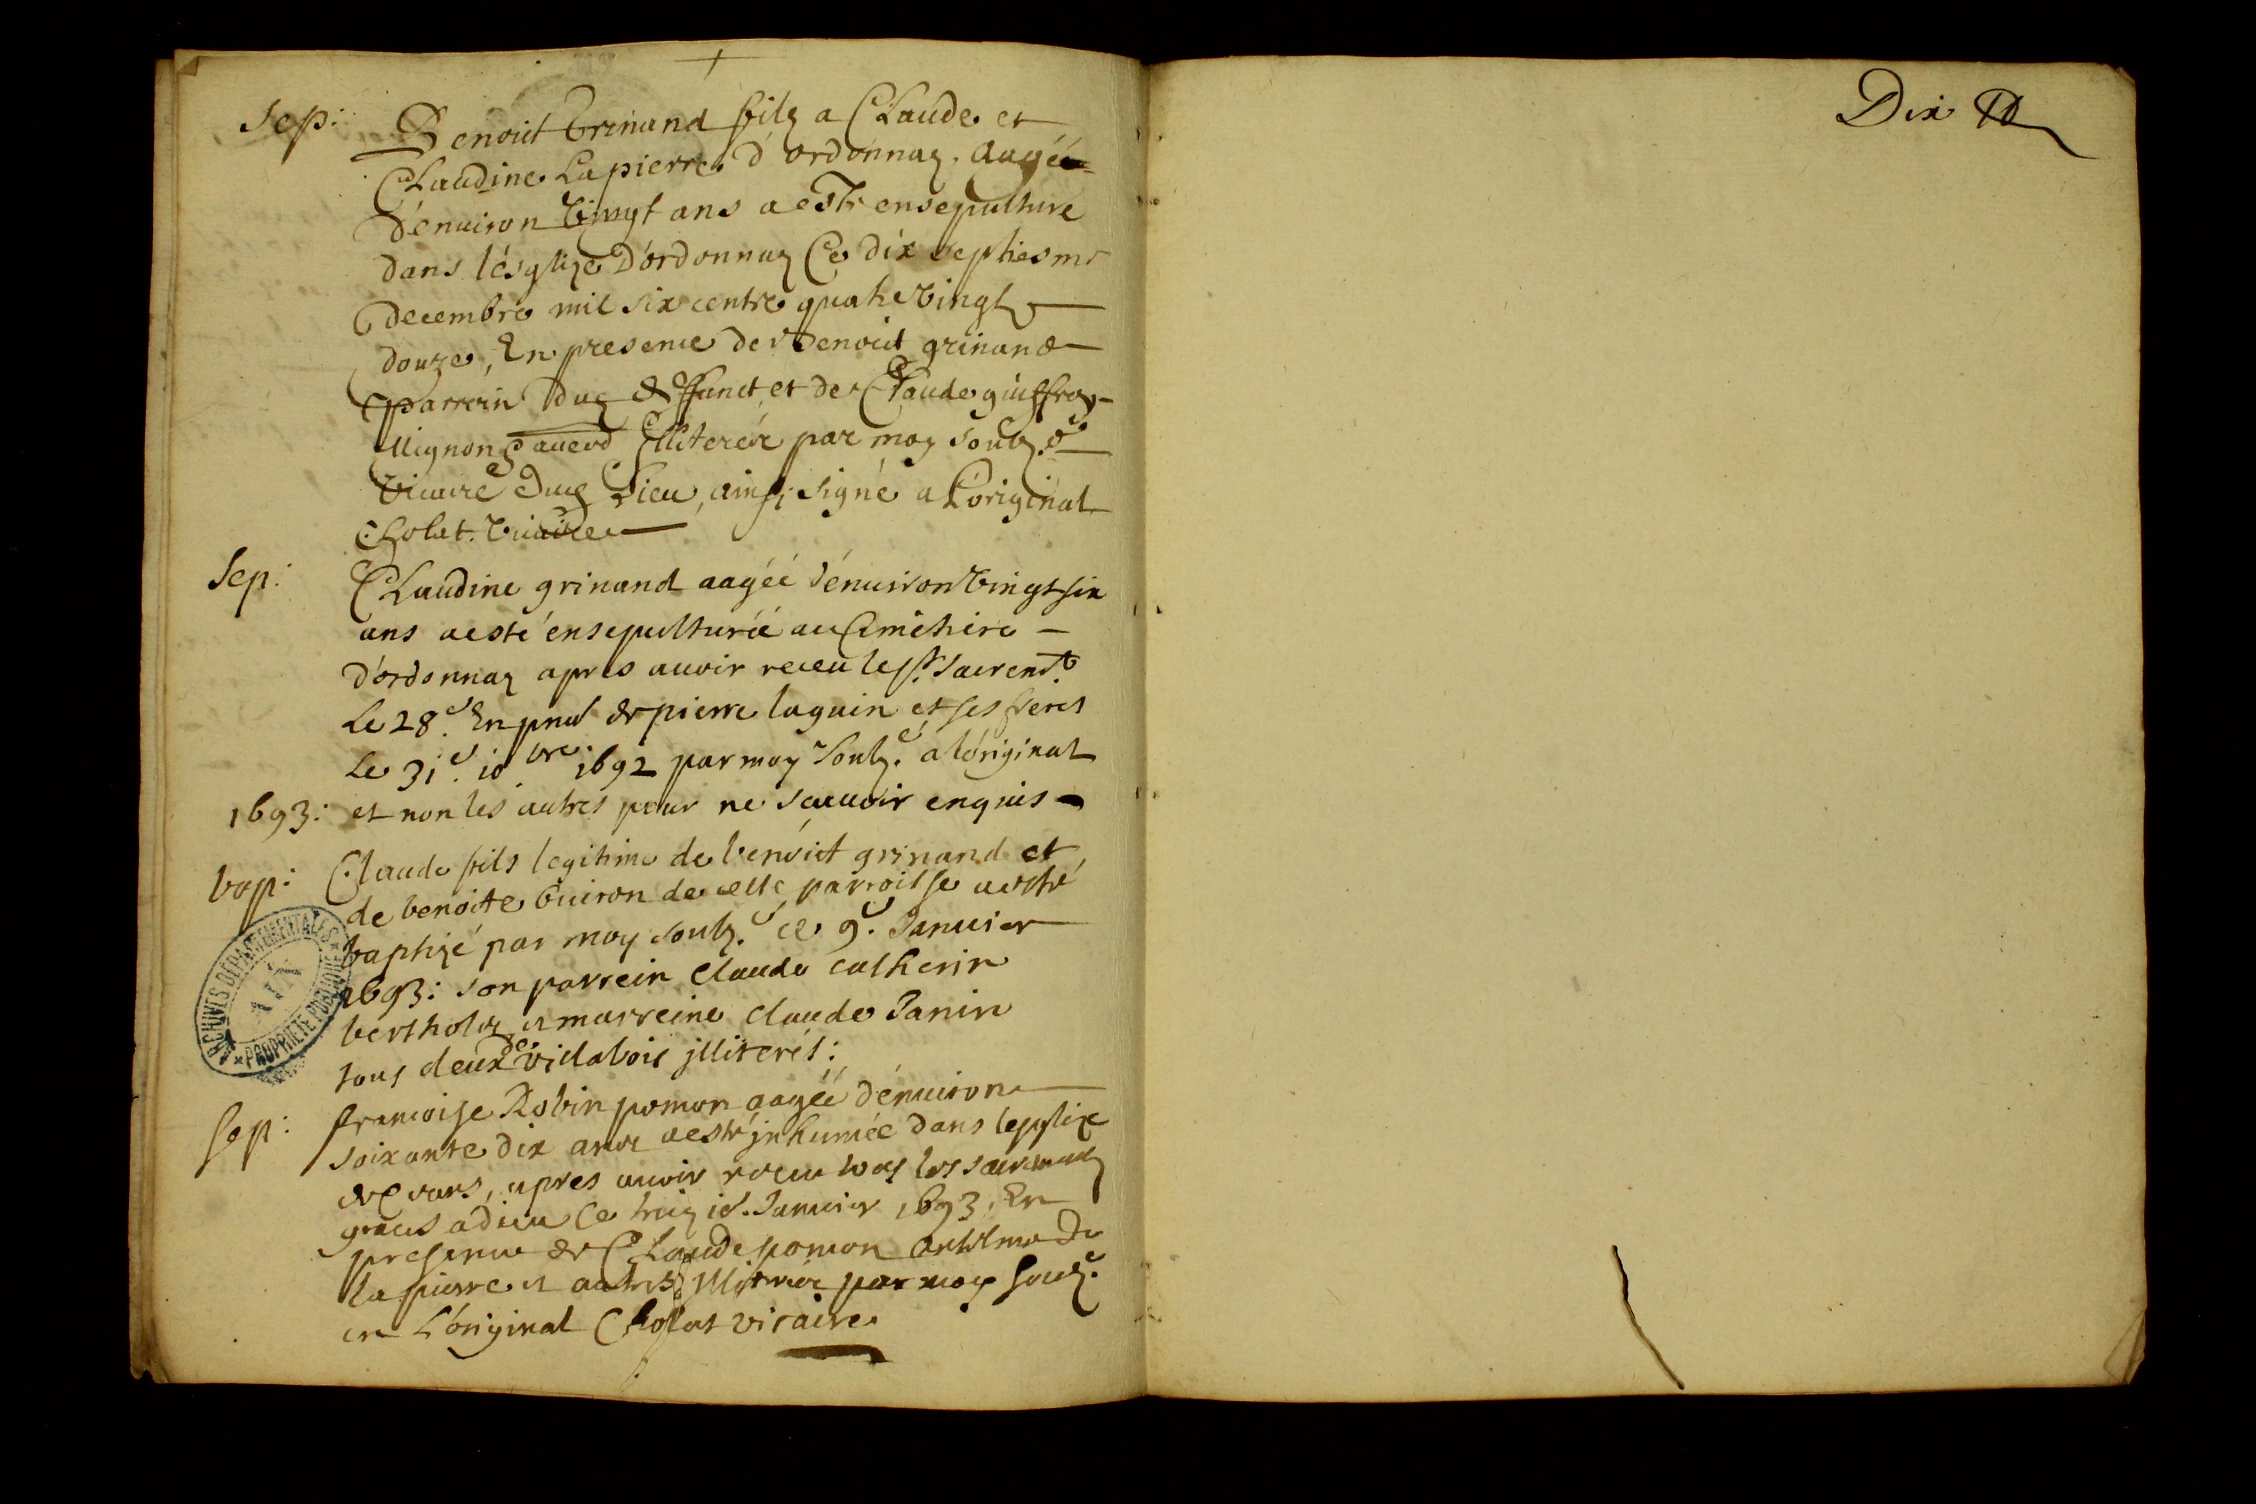 Sep:
Benoict Grinand filz a Claude et
Claudine Lapierre d'ordonnaz. Aagéé
d'enuiron Vingt ans a esté ensepulture
dans l'ésglize D'ordonnaz Ce dix septiesme
decembre mil six centz quatre Vingt
douze, En presence de Benoict grinand
parrein Dud deffunct, et de Claude guiffray
Mignon Illiteréz par moy soubz.é
Vicaire Dud Lieu, ainsi signé a L'original
Cholat. Vicaire
Sep:
Claudine grinand aagéé d'énuiron Vingt six
ans a esté ensepulturéé au Cimetiere
D'ordonnaz apres auoir receu les st. sacrents.
Le 28e. En pnce de pierre laguin et ses freres
Le 31e. 10bre. 1692 par moy soubz.é a l'original
1693:
et non les autres pour ne scauoir enquis
bap:
Claude fils legitime de benoict grinand et
de benoite buiron de cette parroisse a esté
baptizé par moy soubz.é ce 9e. Januier
1693: son parrein Claude Catherin
bertholoz et marreine Claude Janin
tous deux de villebois jlliterés:
Sep:
francoise Robin pomon aagéé d'énuiron
soixante dix ans a esté jnhumée dans l'eglize
apres auoir receu tous les sacrements
graces a dieu Ce Januier 1693, En
presence de Claude pomon Antelme De
lapierre et autres Illiterez par moy soubz.é
en L'original Cholat vicaire.
Dix
ARCHIVES DÉPARTEMENTALES
AIN
PROPRIÉTÉ PUBLIQUE